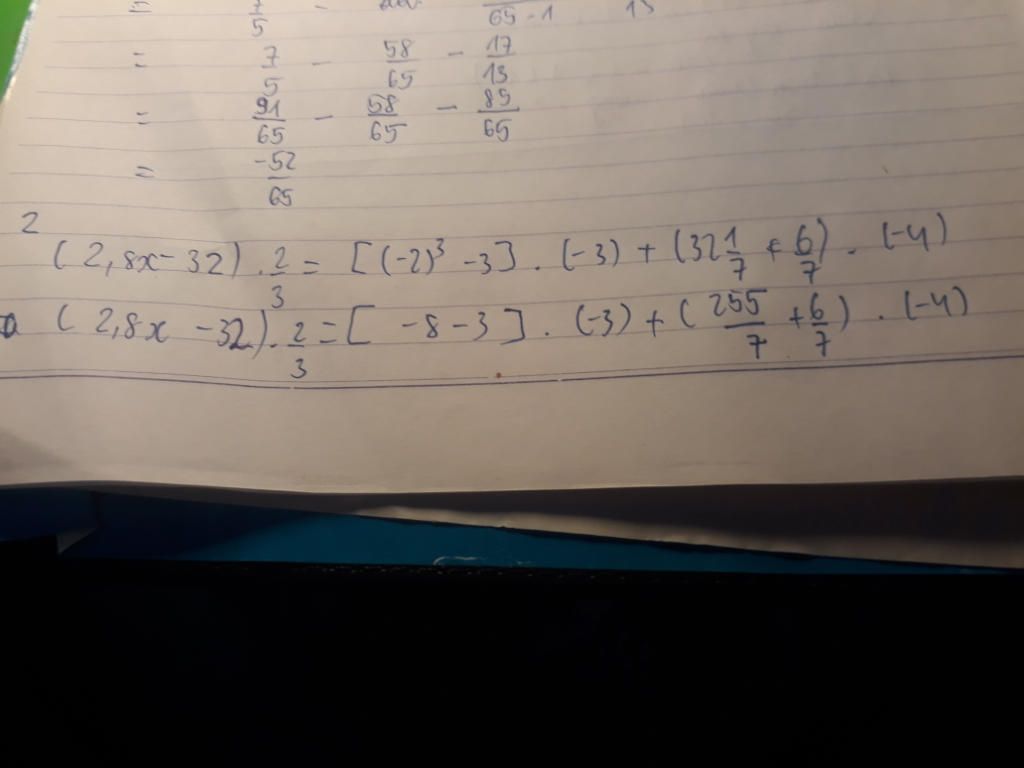 = 7/5 - 65 - 1 13
= 7/5 - 58/65 - 17/13
= 91/65 - 58/65 - 85/65
= -52/65
2
(2,8x - 32) . 2/3 = [(-2)³ - 3] . (-3) + (32 1/7 + 6/7) . (-4)
(2,8x - 32) . 2/3 = [ -8 - 3 ] . (-3) + ( 255/7 + 6/7 ) . (-4)